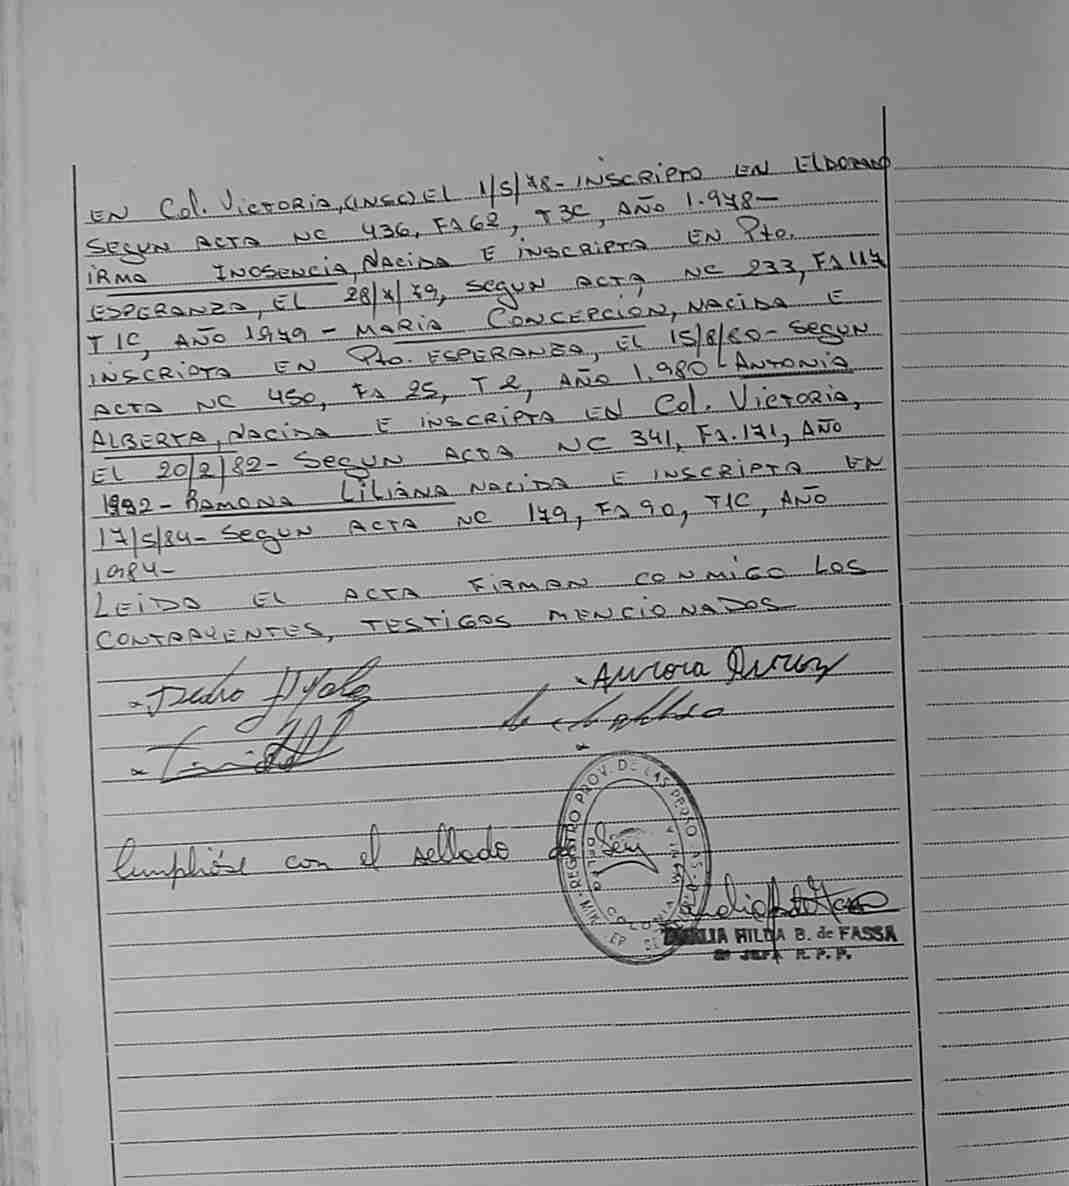 EN Col. VICTORIA, (INSC) EL 1/5/78- INSCRIPTO EN ELDORADO
SEGUN ACTA NC 436, Fº 62, T3C, AÑO 1.978-
IRMA INOSENCIA, NACIDA E INSCRIPTA EN Pto.
ESPERANZA, EL 28/X/79, SEGUN ACTA, NC 233, Fº 117
T1C, AÑO 1979 - MARIA CONCEPCIÓN, NACIDA E
INSCRIPTA EN Pto. ESPERANZA, EL 15/8/80- SEGUN
ACTA NC 450, Fº 25, T 2, AÑO 1.980- ANTONIA
ALBERTA, NACIDA E INSCRIPTA EN Col. VICTORIA,
EL 20/2/82- SEGUN ACTA NC 341, Fº. 171, AÑO
1982- RAMONA LILIANA NACIDA E INSCRIPTA EN
17/5/84- SEGUN ACTA NC 179, Fº 90, T1C, AÑO
1984-
LEIDA EL ACTA FIRMAN CONMIGO LOS
CONTRAYENTES, TESTIGOS MENCIONADOS
Pedro
Aurora
Cumplióse con el sellado de
REGISTRO PROV. DE LAS PERSONAS
COLONIA VICTORIA
HILDA B. de FASSA
JEFA R. P. P.